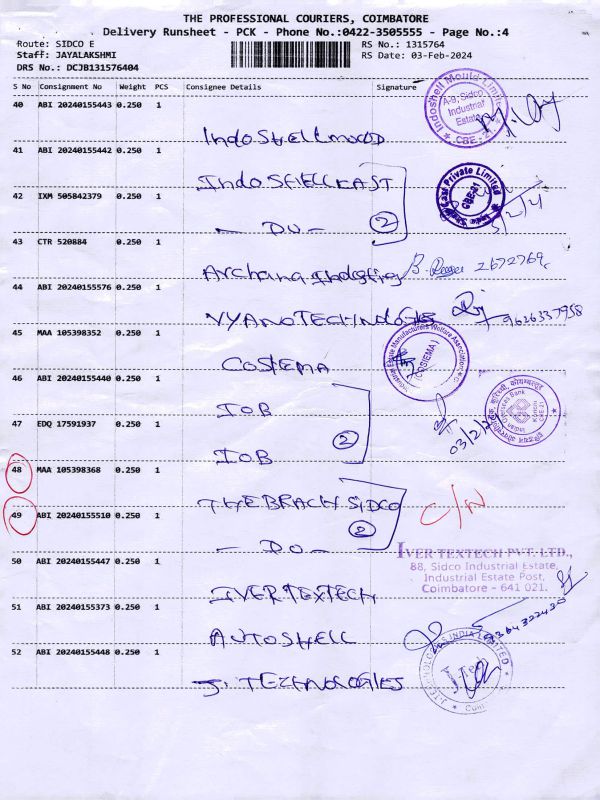 THE PROFESSIONAL COURIERS, COIMBATORE
Delivery Runsheet - PCK - Phone No.:0422-3505555 - Page No.:4
Route: SIDCO E
Staff: JAYALAKSHMI
DRS No.: DCJB131576404
RS No.: 1315764
RS Date: 03-Feb-2024
S No Consignment No Weight PCS Consignee Details Signature
40 ABI 20240155443 0.250 1
Indoshell mould
Indoshell Mould Limited
A-9, Sidco
Industrial
Estate
CBE-21
41 ABI 20240155442 0.250 1
INDO SHELL CAST
Cast Private Limited
CBE-21
42 IXM 505842379 0.250 1
- DO -
2
43 CTR 520884 0.250 1
Archana
2672769
44 ABI 20240155576 0.250 1
VYANO TECHNOLOGIES
9626337958
45 MAA 105398352 0.250 1
COSIEMA
Industrial Estate Manufacturers Welfare Association
(COSIEMA)
46 ABI 20240155440 0.250 1
IOB
47 EDQ 17591937 0.250 1
IOB
2
48 MAA 105398368 0.250 1
THE BRACH SIDCO
C/N
49 ABI 20240155510 0.250 1
- DO -
2
IVER TEXTECH PVT. LTD.,
88, Sidco Industrial Estate,
Industrial Estate Post,
Coimbatore - 641 021.
50 ABI 20240155447 0.250 1
IVER TEXTECH
51 ABI 20240155373 0.250 1
AUTOSHELL
9364322435
52 ABI 20240155448 0.250 1
J. TECHNOLOGIES
J-TECHNOLOGIES INDIA LIMITED
J-Tec